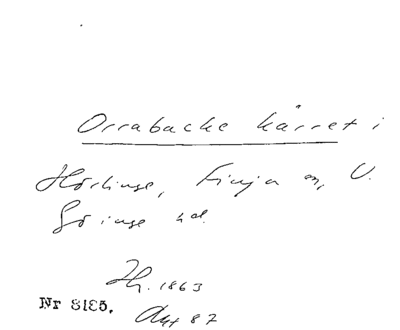 Orrabacke kärret i
Hörlinge, Finja m, V.
Göinge hd.
Hz. 1863
Nr 8185. Akt 87